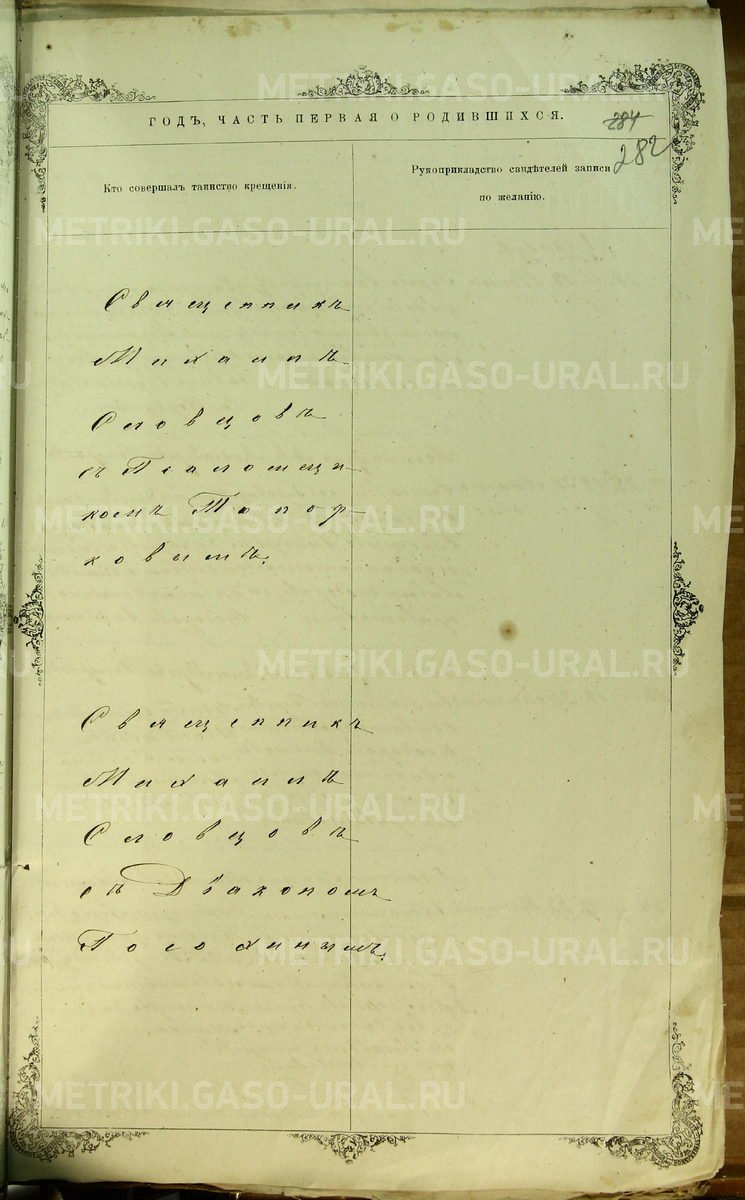 ГОДЪ, ЧАСТЬ ПЕРВАЯ О РОДИВШИХСЯ.
284
282
Кто совершалъ таинство крещенія.
Рукоприкладство свидѣтелей записи
по желанію.
Священникъ
Михаилъ
Словцовъ
съ Псаломщи
комъ Топор
ковымъ.
Священникъ
Михаилъ
Словцовъ
съ Діакономъ
METRIKI.GASO-URAL.RU